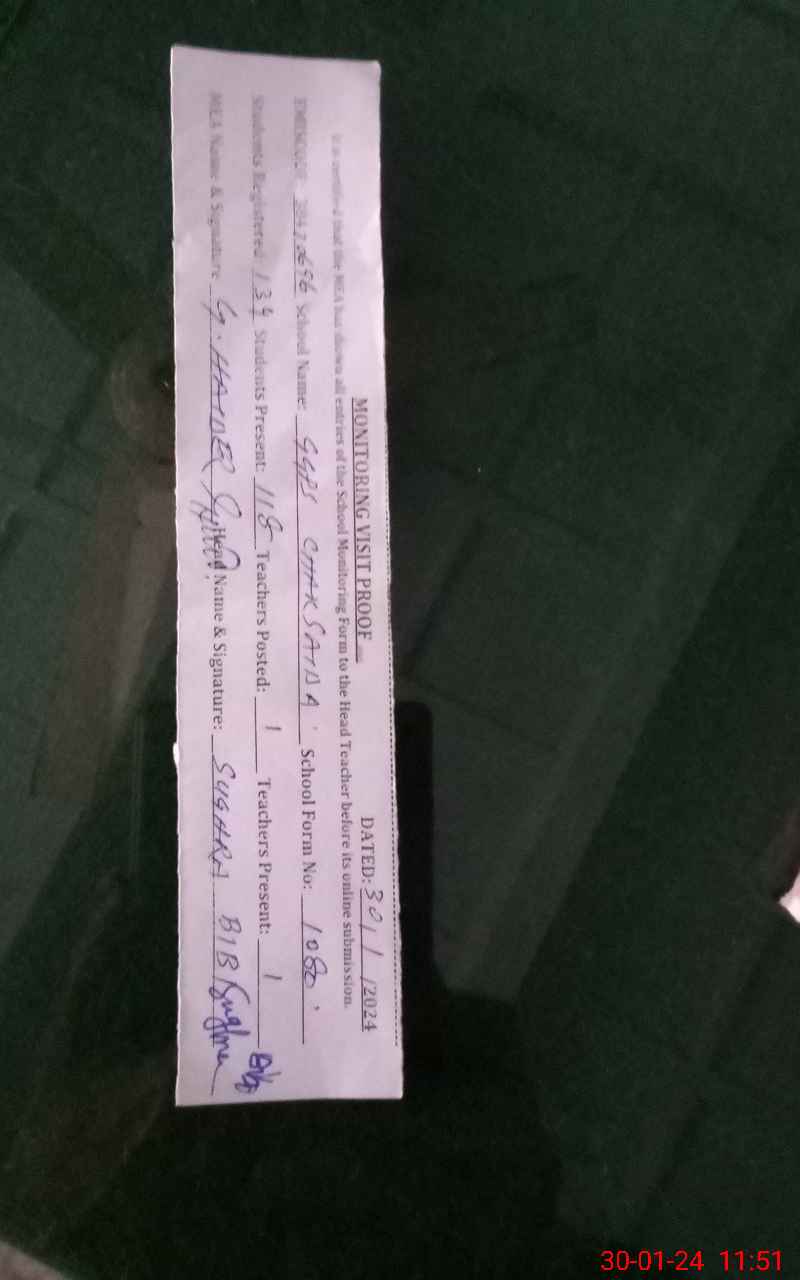 MONITORING VISIT PROOF
DATED: 30/1/2024
It is certified that the MEA has shown all entries of the School Monitoring Form to the Head Teacher before its online submission.
School Name: GGPS CHAK SAIDA School Form No: 1080
Students Registered 134 Students Present: 118 Teachers Posted: 1 Teachers Present: 1
MEA Name & Signature G. HAIDER Head Name & Signature: SUGHRA BIBI
30-01-24 11:51